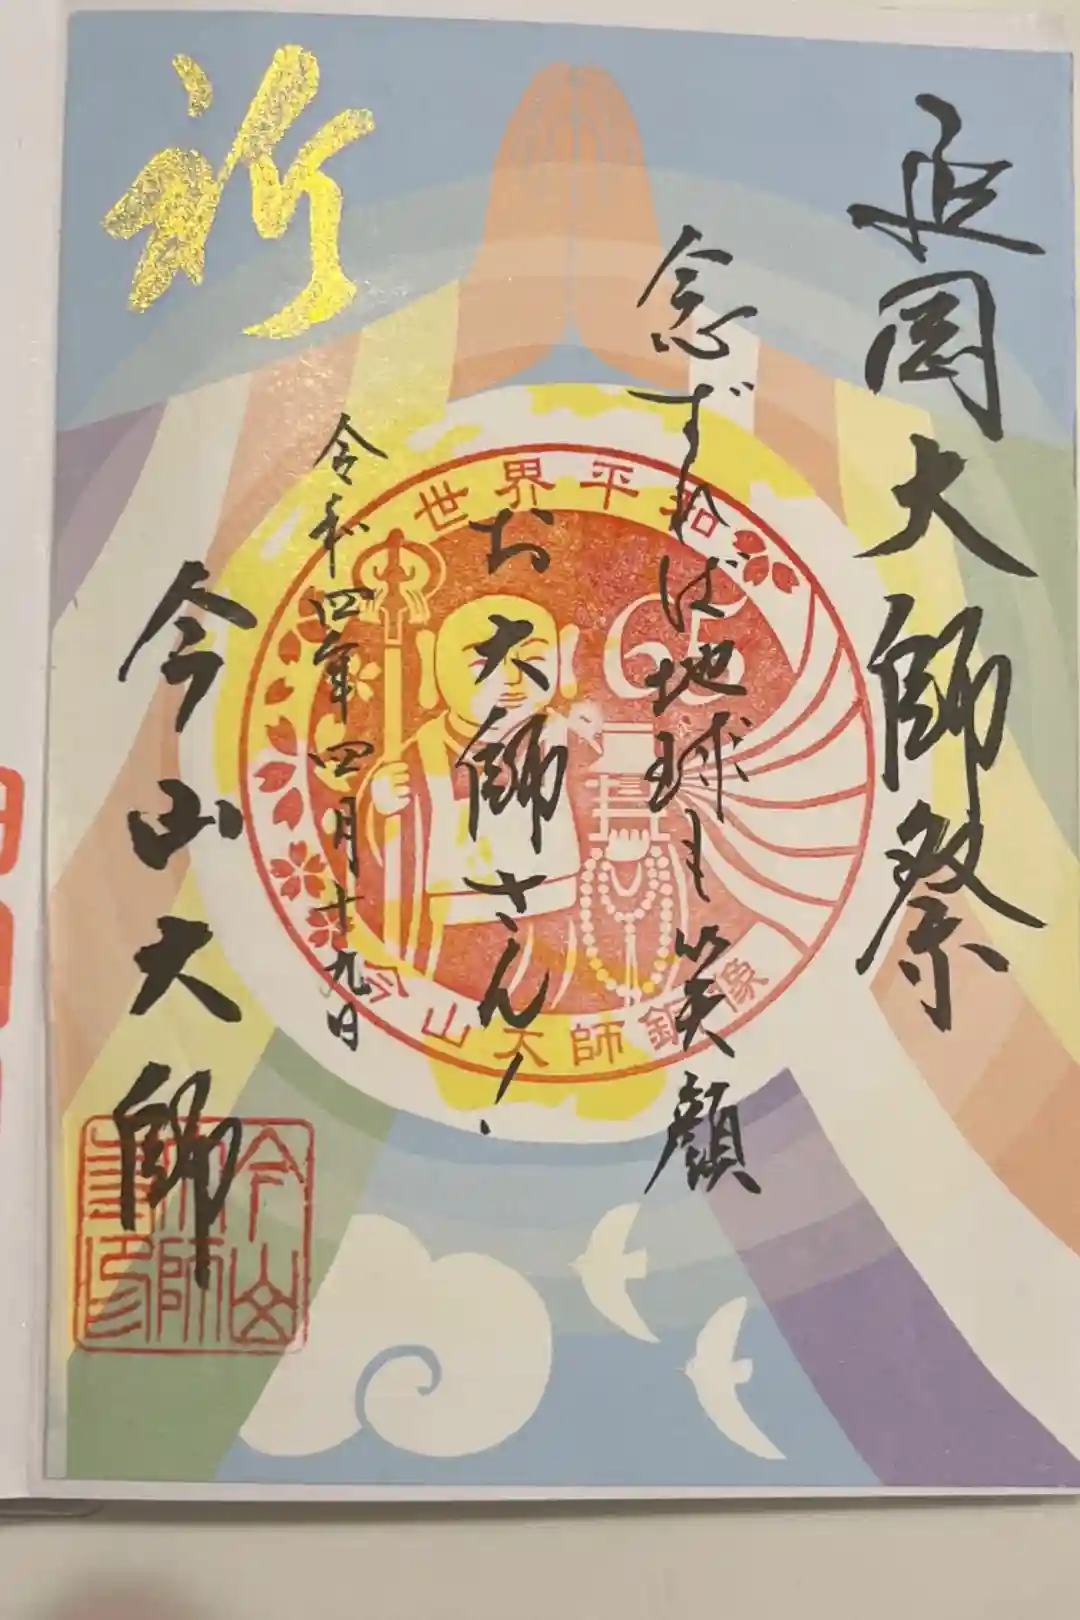 延岡大師祭
念ずれば地球も笑顔
お大師さん!
令和四年四月十九日
今山大師
祈
世界平和
今山大師銅像
今山
大師